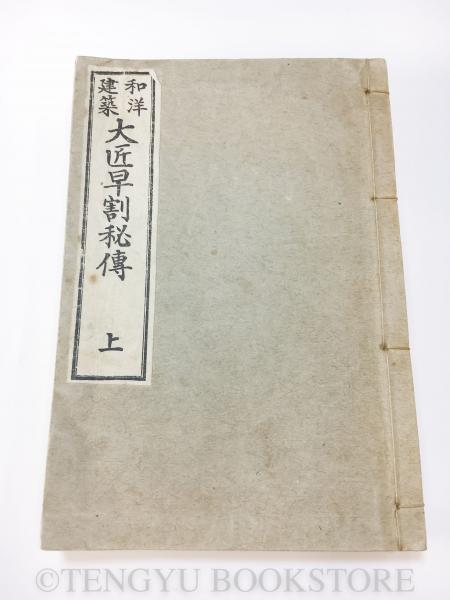 和洋
建築
大匠早割秘傳
上
©TENGYU BOOKSTORE